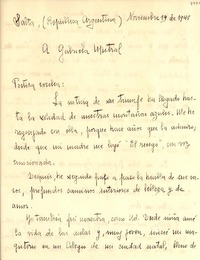 Salta, (República Argentina) Noviembre 19 de 1945
A Gabriela Mistral
Poetisa excelsa:
La noticia de su triunfo ha llegado hasta
la soledad de nuestras montañas azules. Me he
regocijado en ella, porque hace años que la admiro,
desde que mi madre me leyó "El ruego", con voz
emocionada.
Después, he seguido paso a paso la huella de sus ver-
sos, profundos caminos interiores de belleza y de
amor.
Yo también fuí maestra, como Ud. Desde niña amé
la vida de las aulas y, muy joven, inicié mi
magisterio en un Colegio de mi ciudad natal, lleno de